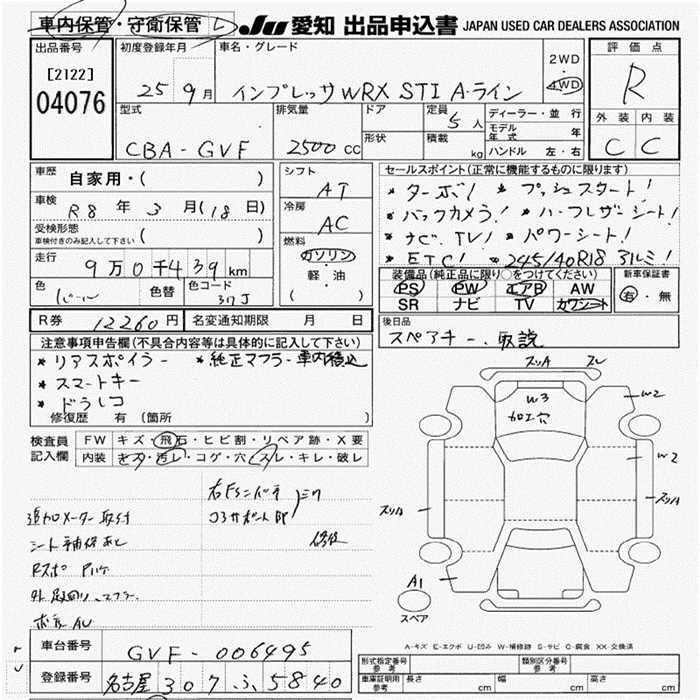 車内保管・守衛保管 JU 愛知 出品申込書 JAPAN USED CAR DEALERS ASSOCIATION
出品番号 [2122] 04076
初度登録年月 25 9月
車名・グレード インプレッサWRX STI A-ライン
2WD・4WD
評価点 R
外装 内装
C C
型式 CBA-GVF
排気量 2500 CC
ドア
形状
定員 5人
積載 kg
ディーラー・並行
モデル年式 年
ハンドル 左・右
車歴 自家用・( )
車検 R8年 3月(18日)
受検形態 車検付きのみ記入して下さい ( )
走行 9万0千439km
色 パール 色替 色コード 37J
シフト AT
冷房 AC
燃料 ガソリン・軽・油 ( )
セールスポイント(正常に機能するものに限ります)
* ターボ! * プッシュスタート!
* バックカメラ! * ハーフレザーシート!
* ナビ、TV! * パワーシート!
* ETC! * 245/40R18 アルミ!
装備品(純正品に限り○をつけてください)
PS PW エアB AW
SR ナビ TV カワシート
新車保証書
有・無
R券 12260円
名変通知期限 月 日
後日品
スペアキー、取説
注意事項申告欄(不具合内容等は具体的に記入して下さい)
* リアスポイラー * 純正マフラー車内積込
* スマートキー
* ドラレコ
修復歴 有 (箇所 )
検査員記入欄
FW キズ・飛石・ヒビ割・リペア跡・X要
内装 キズ・汚レ・コゲ・穴・スレ・キレ・破レ
追加メーター取付
シート補修あと
コアサポート部
修復
スリA スレ
W3
加工穴
W2
W2
スリA
スリA
A1
スペア
A-キズ E-エクボ U-凹み W-補修跡 S-サビ C-腐食 XX-交換済
車台番号 GVF-006495
登録番号 名古屋 307 ふ 5840
型式指定番号 参考
類別区分番号 参考
車庫証明用 参考 長さ cm 幅 cm 高さ cm